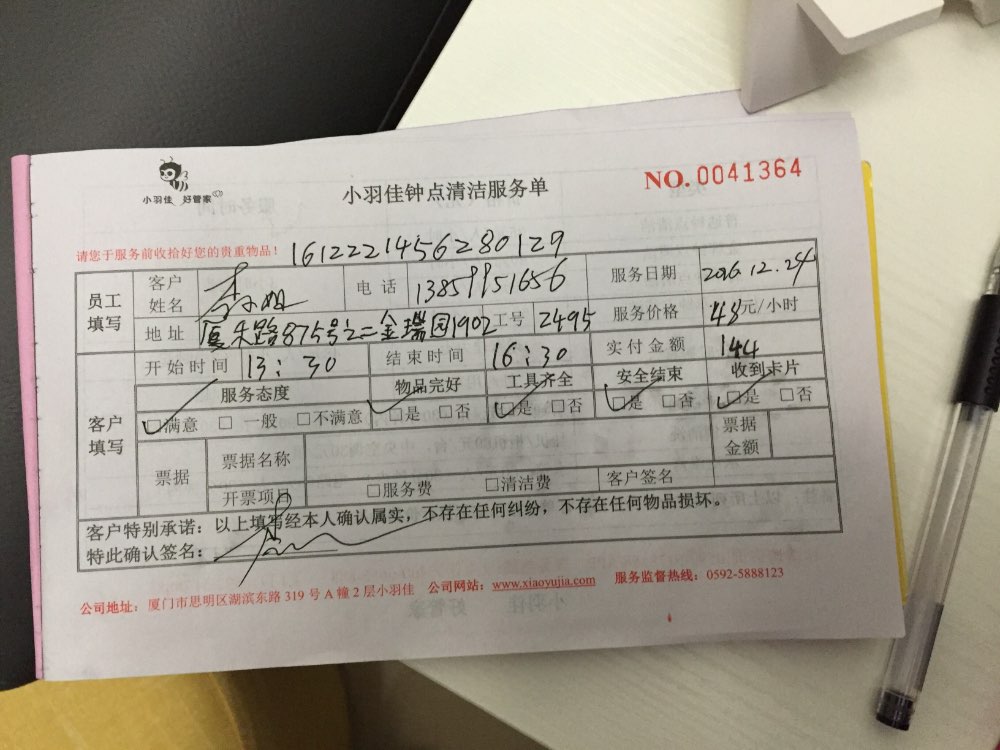 小羽佳 好管家
小羽佳钟点清洁服务单
NO. 0041364
请您于服务前收拾好您的贵重物品！ 1612221456280129
员工填写 客户姓名 李小姐 电话 13859951656 服务日期 2016.12.24
地址 厦禾路875号之二金瑞园1902 工号 2495 服务价格 48元/小时
客户填写 开始时间 13：30 结束时间 16：30 实付金额 144
服务态度 物品完好 工具齐全 安全结束 收到卡片
☑满意 □一般 □不满意 ☑是 □否 ☑是 □否 ☑是 □否 ☑是 □否
票据 票据名称 票据金额
开票项目 □服务费 □清洁费 客户签名
客户特别承诺：以上填写经本人确认属实，不存在任何纠纷，不存在任何物品损坏。
特此确认签名：
公司地址：厦门市思明区湖滨东路319号A幢2层小羽佳 公司网站：www.xiaoyujia.com 服务监督热线：0592-5888123